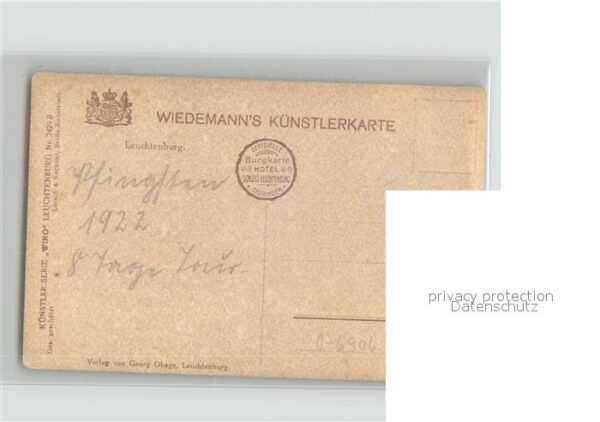 WIEDEMANN'S KÜNSTLERKARTE
Leuchtenburg.
OFFIZIELLE
Burgkarte
HOTEL
SCHLOSS LEUCHTENBURG
THÜRINGEN
Pfingsten
1922
8 Tage Tour.
KÜNSTLER-SERIE „WIRO" LEUCHTENBURG Nr. 2429.B
Ges. geschützt.
Verlag von Georg Ohage, Leuchtenburg.
privacy protection
Datenschutz